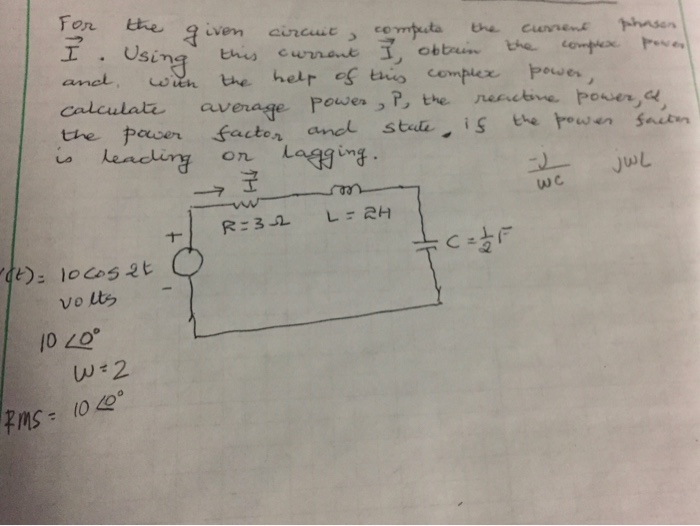 For the given circuit, compute the current phasor
I. Using this current I, obtain the complex power
and, with the help of this complex power,
calculate average power, P, the reactive power, Q,
the power factor and state, if the power factor
is leading or lagging.
-j/wc jwL
I
R=3Ω L=2H
+
C=1/2F
(t)= 10cos2t
-
volts
10∠0°
W=2
RMS= 10∠0°